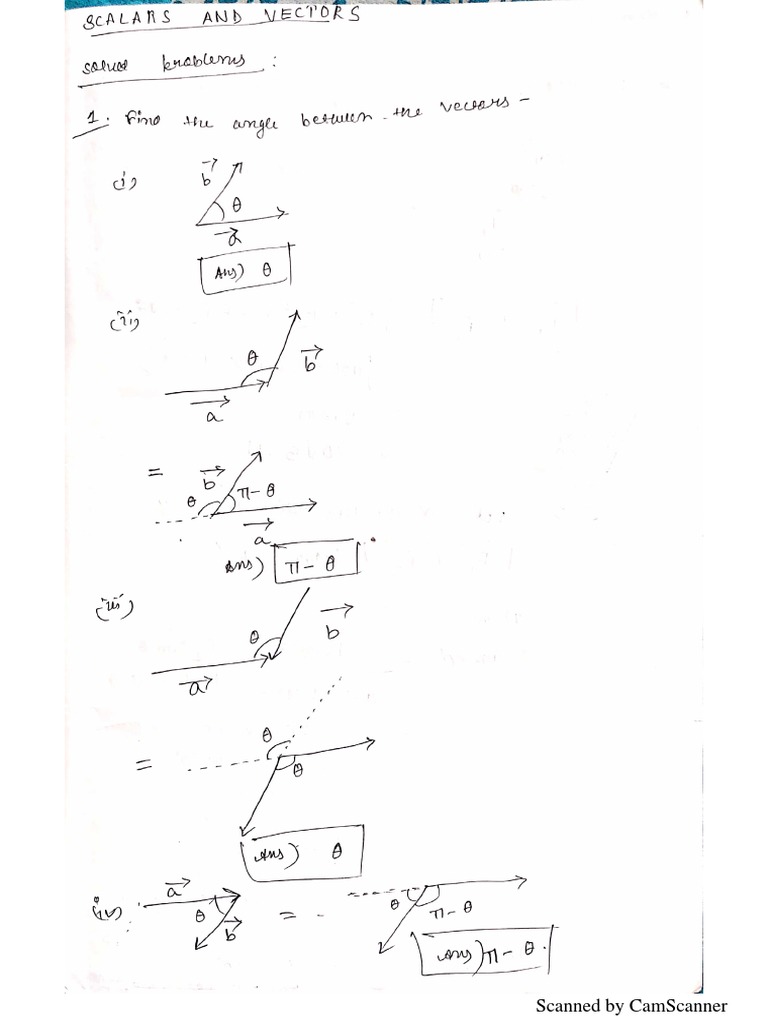 SCALARS AND VECTORS
problems :
1. Find the angle between the vectors -
(i)
b
θ
a
Ans) θ
(ii)
θ
b
a
=
b
θ
π - θ
a
Ans) π - θ
(iii)
θ
b
a
=
θ
θ
Ans) θ
(iv)
a
θ
b
=
θ
π - θ
Ans) π - θ.
Scanned by CamScanner